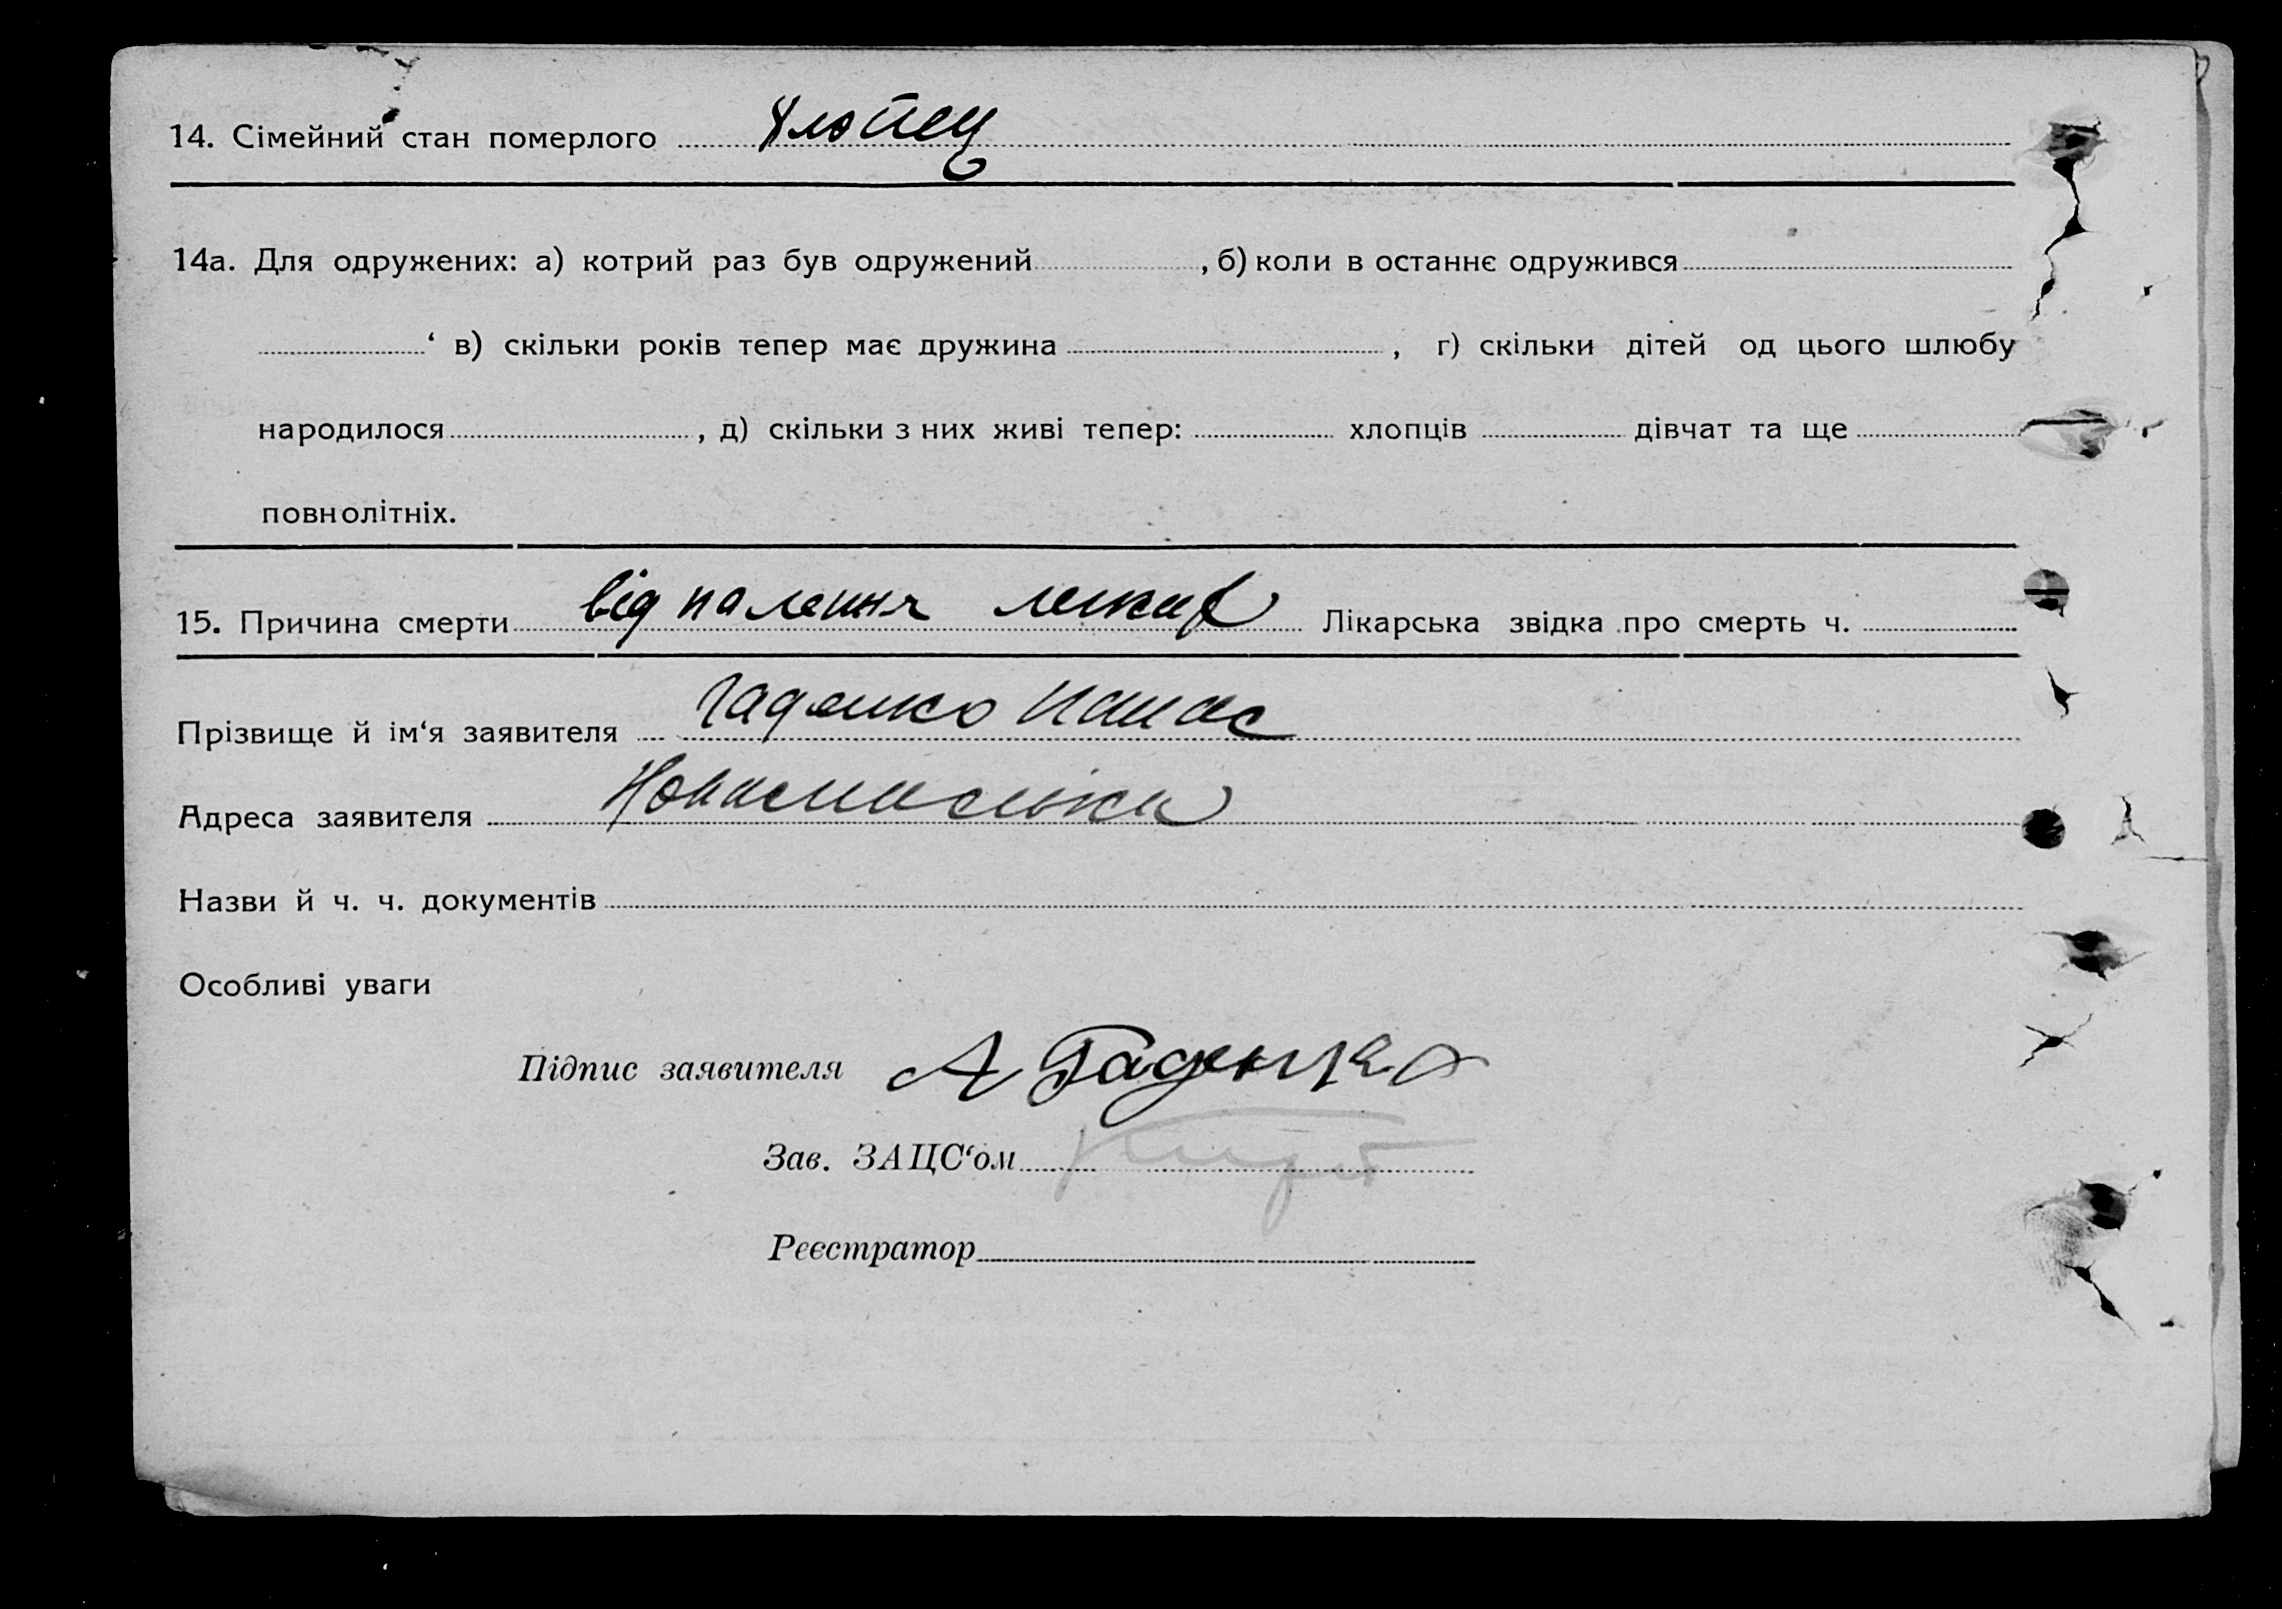 14. Сімейний стан померлого хлопец
14а. Для одружених: а) котрий раз був одружений , б) коли в останнє одружився
‘ в) скільки років тепер має дружина , г) скільки дітей од цього шлюбу
народилося , д) скільки з них живі тепер: хлопців дівчат та ще
повнолітніх.
15. Причина смерти від палення легких Лікарська звідка про смерть ч.
Прізвище й ім‘я заявителя Гаденко Панас
Адреса заявителя
Назви й ч. ч. документів
Особливі уваги
Підпис заявителя А Гаденко
Зав. ЗАЦС‘ом
Реєстратор